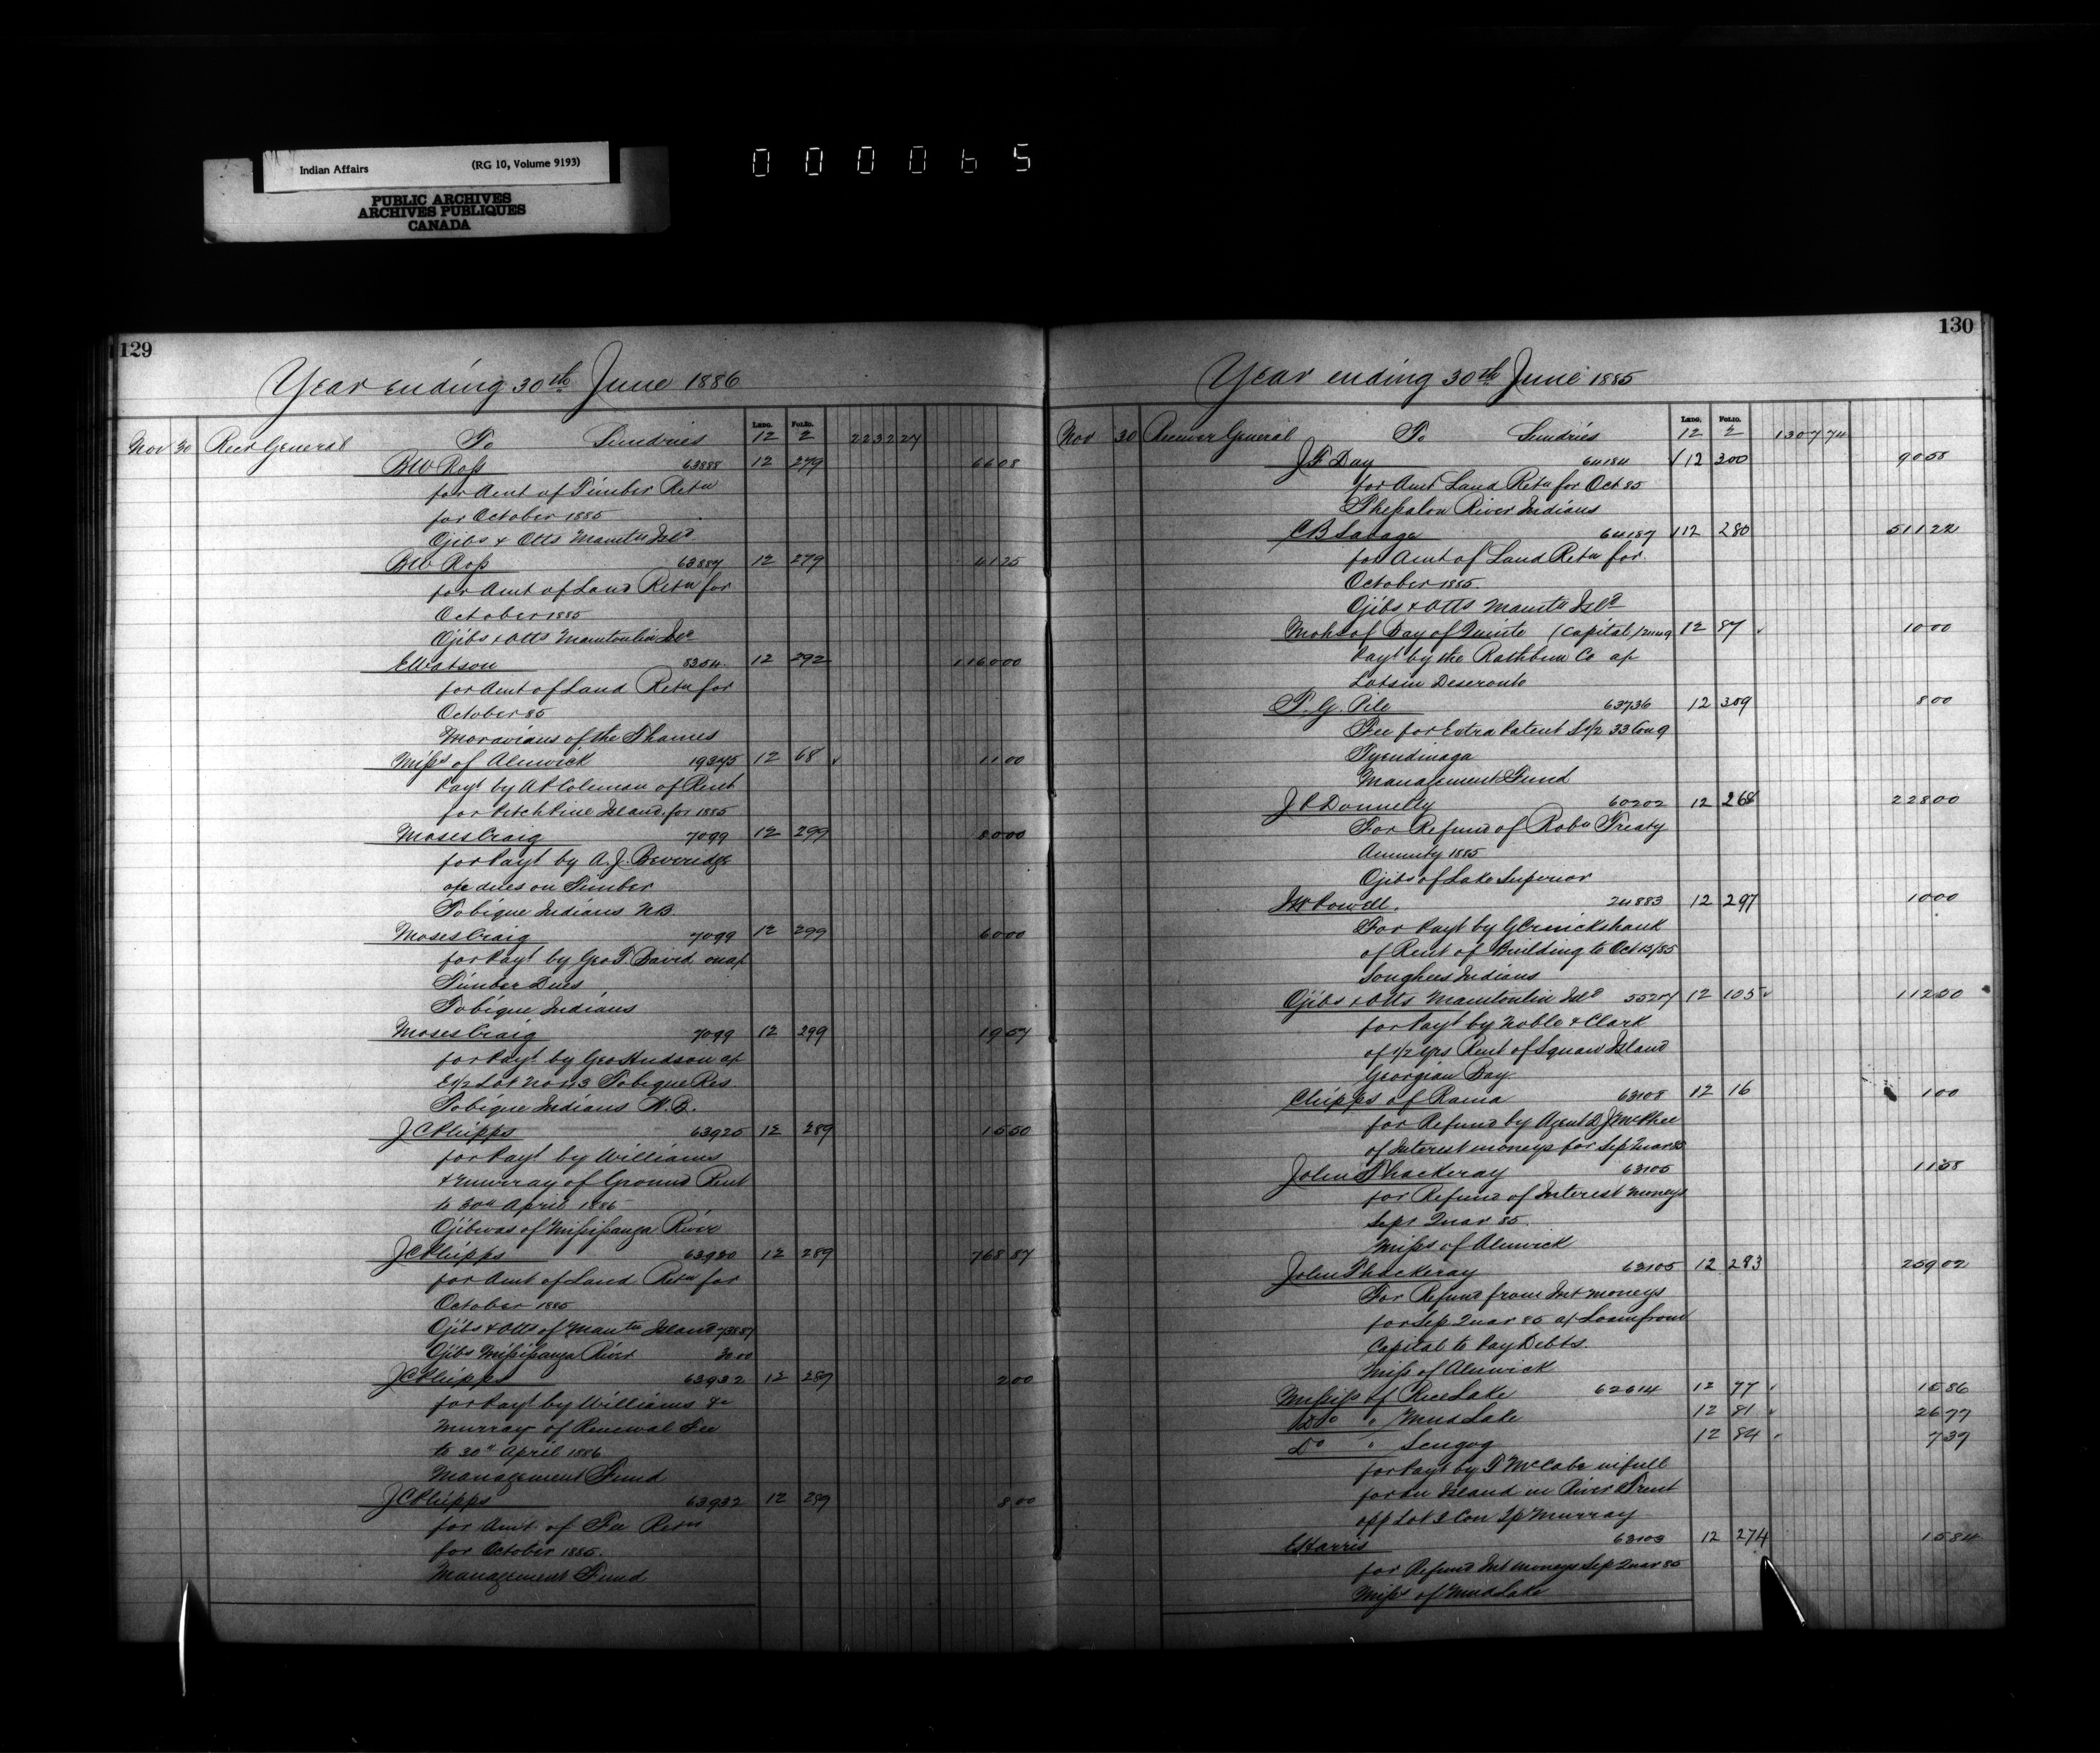 Indian Affairs (RG 10, Volume 9193)
PUBLIC ARCHIVES
ARCHIVES PUBLIQUES
CANADA
000065
129
Year ending 30th June 1886
LEDG. FOLIO.
Nov 30 Recr General To Sundries 12 2 2232 27
B W Ross 63888 12 279 66 08
for Amt of Timber Retn
for October 1885
Ojibs & Otts Manitn Isld
B W Ross 63887 12 279 41 25
for Amt of Land Retn for
October 1885
Ojibs & Otts Manitoulin Isld
E Watson 8304 12 292 1160 00
for Amt of Land Retn for
October 85
Moravians of the Thames
Misss of Alnwick 19375 12 68 11 00
Payt by A P Coleman of Rent
for Pitch Pine Island for 1885
Moses Craig 7099 12 299 80 00
for Payt by A. J. Beveridge
o/a dues on Timber
Tobique Indians N.B.
Moses Craig 7099 12 299 60 00
for Payt by Geo T. David on a/c
Timber Dues
Tobique Indians
Moses Craig 7099 12 299 19 57
for Payt by Geo Hudson a/c
E 1/2 Lot No 13 Tobique Res
Tobique Indians N.B.
J C Phipps 63925 12 289 15 50
for Payt by Williams
& Murray of Ground Rent
to 30th April 1886
Ojibwas of Mississauga River
J C Phipps 63920 12 289 768 87
for Amt of Land Retn for
October 1885
Ojibs & Otts of Manitn Island 738 87
Ojibs Mississauga River 30.00
J C Phipps 63932 12 289 2 00
for Payt by Williams &
Murray of Renewal Fee
to 30th April 1886
Management Fund
J C Phipps 63932 12 289 8 00
for Amt of Fee Retn
for October 1885.
Management Fund
130
Year ending 30th June 1885
LEDG. FOLIO.
Nov 30 Receiver General To Sundries 12 2 1307 74
J F Day 64184 12 300 90 58
for Amt Land Retn for Oct 85
Thessalon River Indians
C B Savage 64187 12 280 511 22
for Amt of Land Retn for
October 1885
Ojibs & Otts Manitn Isld
Mohs of Bay of Quinte (Capital) 12 87 10 00
Payt by the Rathbun Co a/c
Lots in Deseronto
T. G. Pile 63736 12 309 8 00
Fee for Extra Patent S 1/2 33 Con 9
Tyendinaga
Management Fund
J P Donnelly 60202 12 268 228 00
For Refund of Robn Treaty
Annuity 1885
Ojibs of Lake Superior
I W Powell. 24883 12 297 10 00
For Payt by G Cruickshank
of Rent of Building to Oct 15/85
Songhees Indians
Ojibs & Otts Manitoulin Isld 12 105 112 50
for Payt by Noble & Clark
of 1/2 yrs Rent of Squaw Island
Georgian Bay.
Chipps of Rama 63108 12 16 1 00
for Refund by Agent D J McPhee
of Interest moneys for Sep Quar 85
John Thackeray 63105 11 58
for Refund of Interest moneys
Sept Quar 85.
Misss of Alnwick
John Thackeray 63105 12 283 259 02
For Refund from Int moneys
for Sep Quar 85 a/c Loan from
Capital to Pay Debts.
Miss of Alnwick
Mississ of Rice Lake 62614 12 77 15 86
Do " Mud Lake 12 81 26 77
Do " Scugog 12 84 7 37
for Payt by T McCabe in full
for an Island in River Trent
opp Lot 2 Con Tp Murray
E Harris 63103 12 274 15 84
for Refund Int moneys Sep Quar 85
Misss of Mud Lake